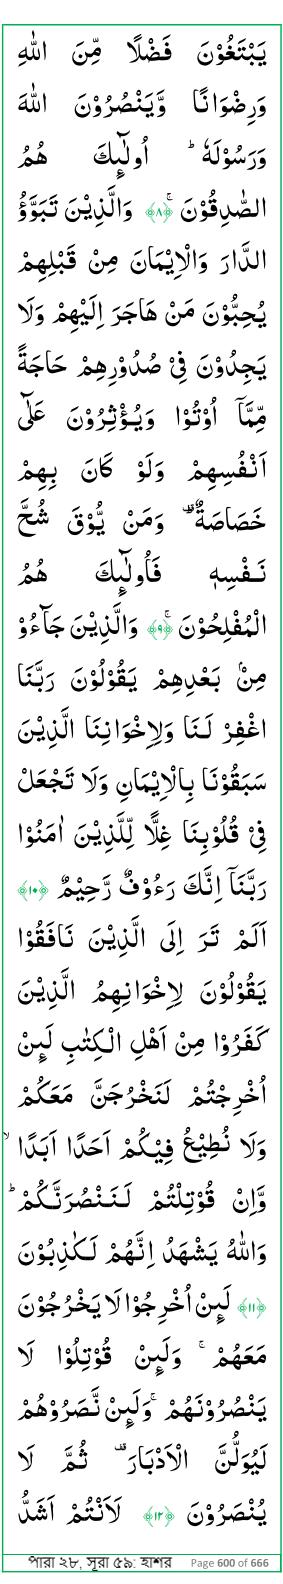 يَبْتَغُوْنَ فَضْلًا مِّنَ اللّٰهِ
وَرِضْوَانًا وَّيَنْصُرُوْنَ اللّٰهَ
وَرَسُوْلَهٗ ؕ اُولٰٓئِكَ هُمُ
الصّٰدِقُوْنَ ۚ ﴿۸﴾ وَالَّذِيْنَ تَبَوَّؤُ
الدَّارَ وَالْاِيْمَانَ مِنْ قَبْلِهِمْ
يُحِبُّوْنَ مَنْ هَاجَرَ اِلَيْهِمْ وَلَا
يَجِدُوْنَ فِىْ صُدُوْرِهِمْ حَاجَةً
مِّمَّاۤ اُوْتُوْا وَيُؤْثِرُوْنَ عَلٰٓى
اَنْفُسِهِمْ وَلَوْ كَانَ بِهِمْ
خَصَاصَةٌ ؕۗ وَمَنْ يُّوْقَ شُحَّ
نَـفْسِهٖ فَاُولٰٓئِكَ هُمُ
الْمُفْلِحُوْنَ ۚ ﴿۹﴾ وَالَّذِيْنَ جَآءُوْ
مِنْۢ بَعْدِهِمْ يَقُوْلُوْنَ رَبَّنَا
اغْفِرْ لَـنَا وَلِاِخْوَانِنَا الَّذِيْنَ
سَبَقُوْنَا بِالْاِيْمَانِ وَلَا تَجْعَلْ
فِىْ قُلُوْبِنَا غِلًّا لِّلَّذِيْنَ اٰمَنُوْا
رَبَّنَاۤ اِنَّكَ رَءُوْفٌ رَّحِيْمٌ ﴿۱۰﴾
اَلَمْ تَرَ اِلَى الَّذِيْنَ نَافَقُوْا
يَقُوْلُوْنَ لِاِخْوَانِهِمُ الَّذِيْنَ
كَفَرُوْا مِنْ اَهْلِ الْكِتٰبِ لَئِنْ
اُخْرِجْتُمْ لَنَخْرُجَنَّ مَعَكُمْ
وَلَا نُطِيْعُ فِيْكُمْ اَحَدًا اَبَدًا ۙ
وَّاِنْ قُوْتِلْتُمْ لَـنَـنْصُرَنَّكُمْ ؕ
وَاللّٰهُ يَشْهَدُ اِنَّهُمْ لَـكٰذِبُوْنَ
﴿۱۱﴾ لَئِنْ اُخْرِجُوْا لَا يَخْرُجُوْنَ
مَعَهُمْ ۚ وَلَئِنْ قُوْتِلُوْا لَا
يَنْصُرُوْنَهُمْ ۚ وَلَئِنْ نَّصَرُوْهُمْ
لَيُوَلُّنَّ الْاَدْبَارَ ؕۗ ثُمَّ لَا
يُنْصَرُوْنَ ﴿۱۲﴾ لَاَنْتُمْ اَشَدُّ
পারা ২৮, সূরা ৫৯: হাশর Page 600 of 666